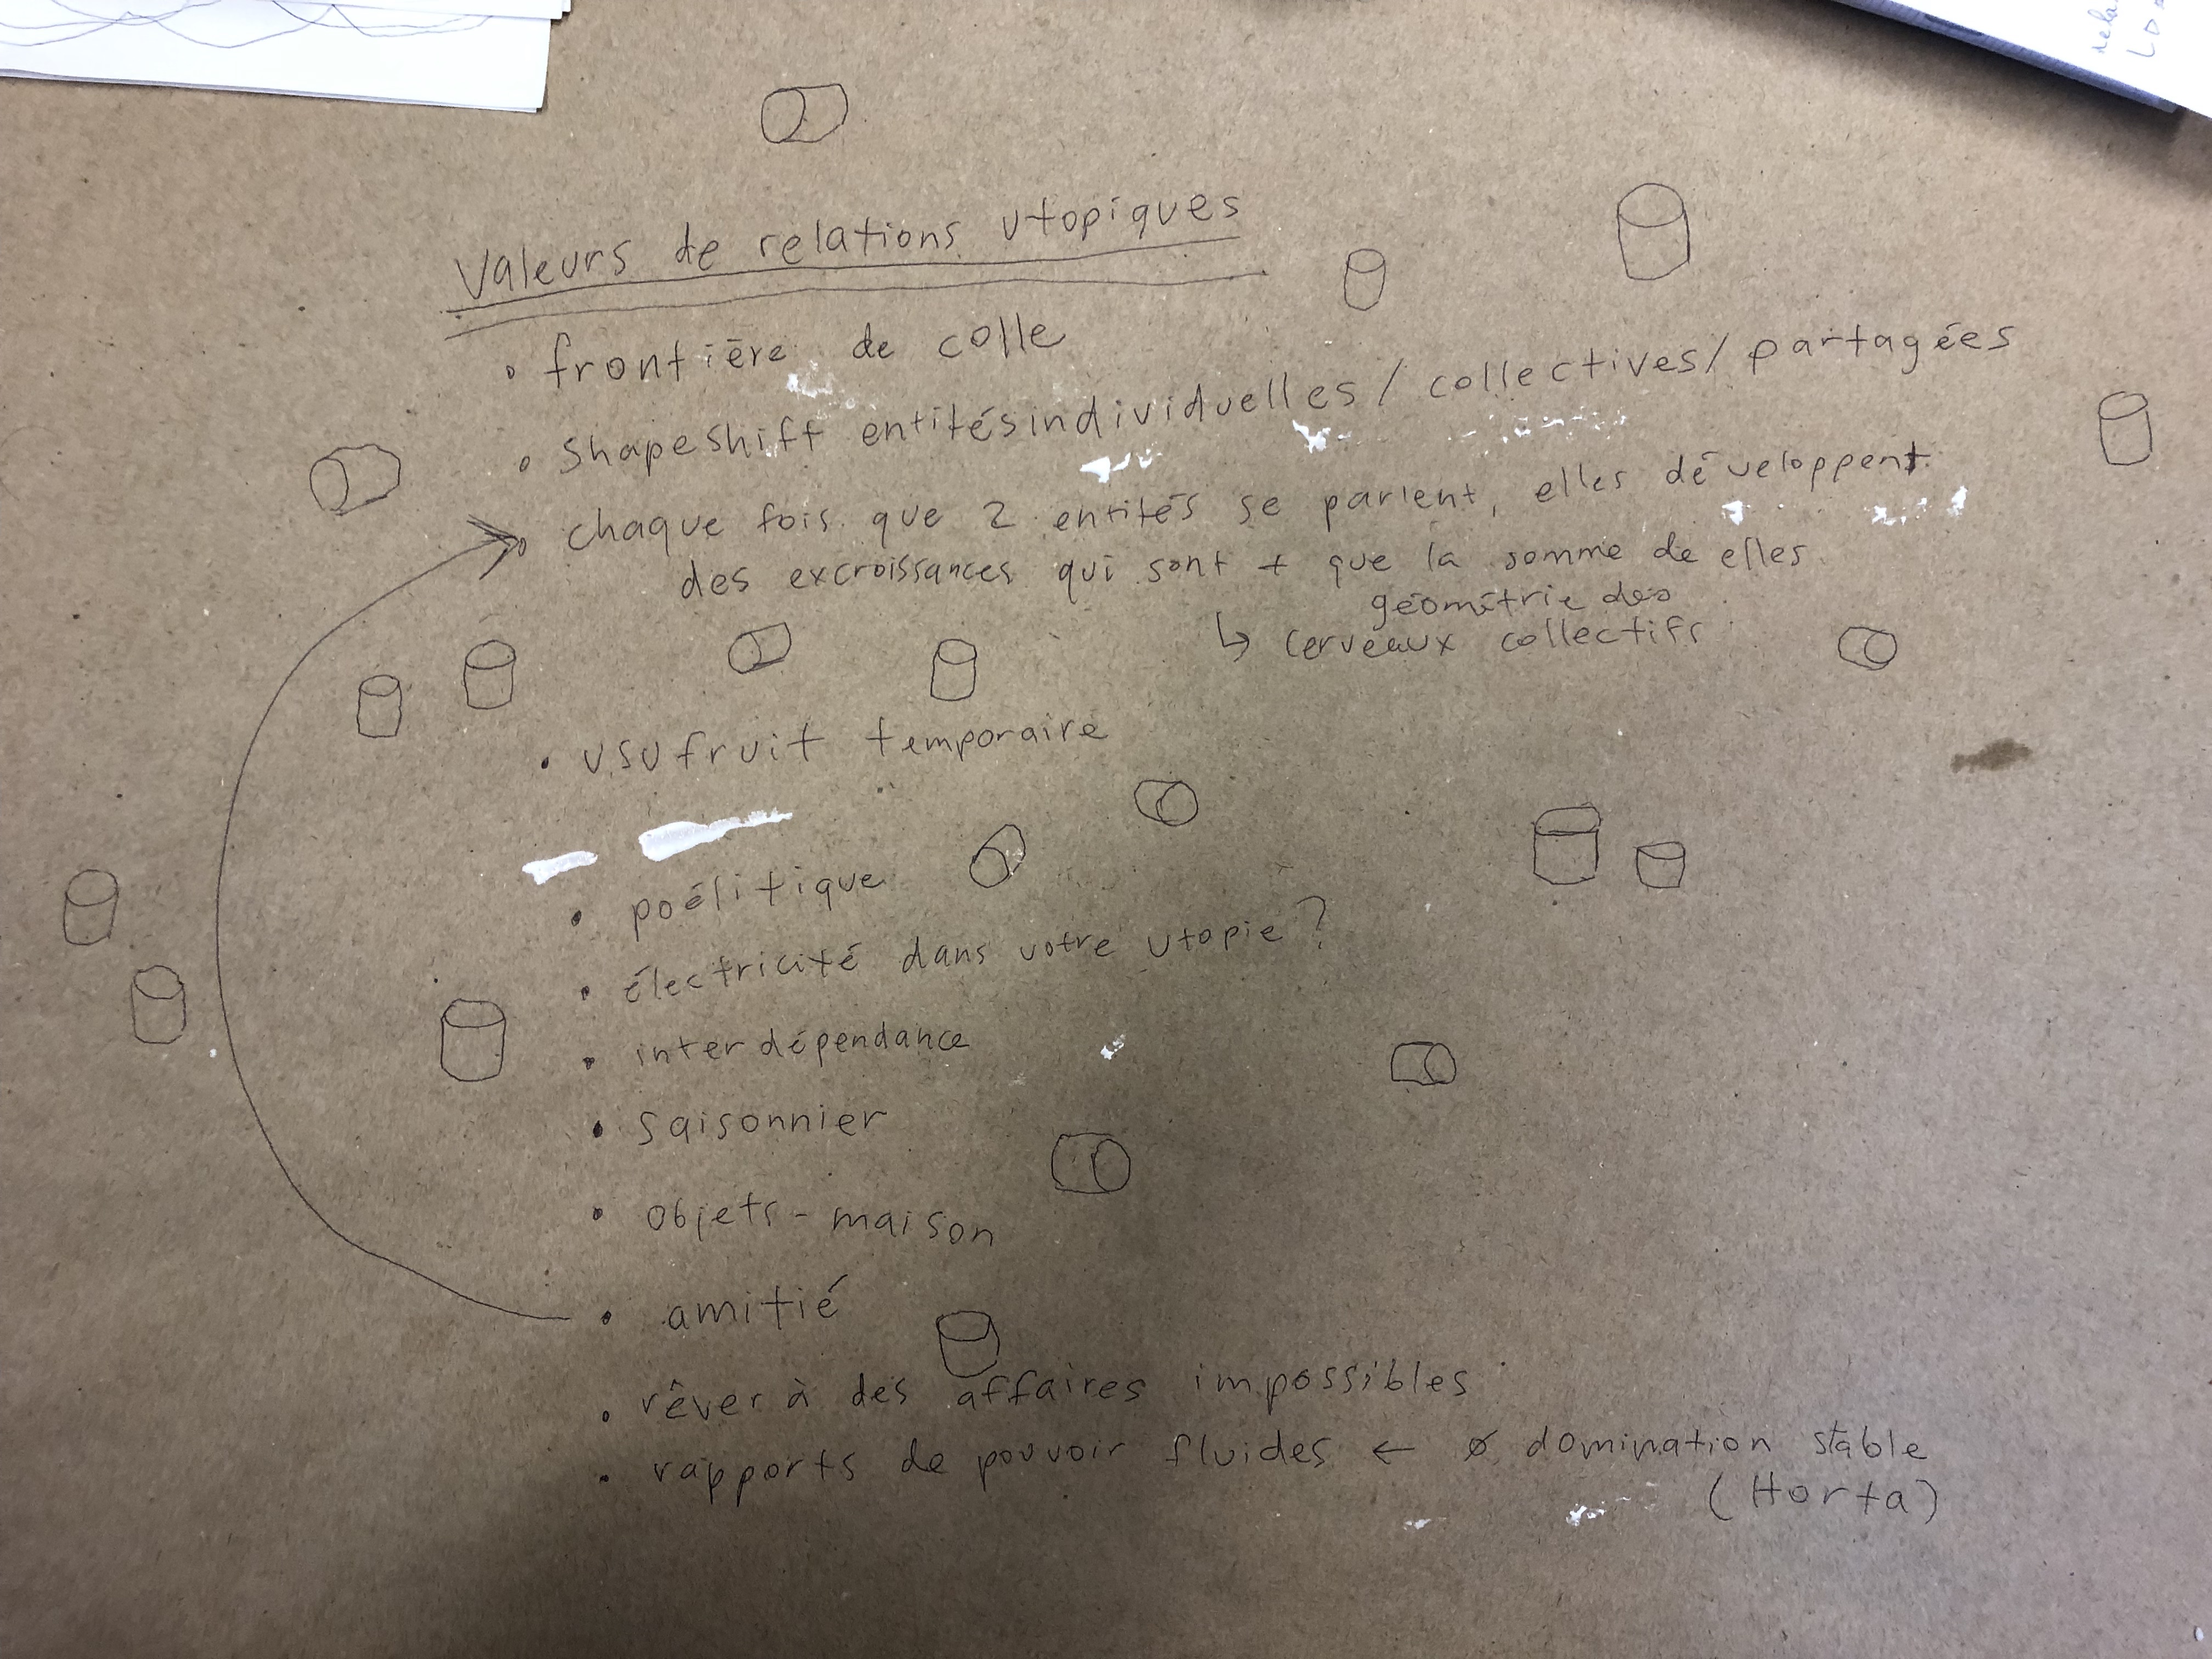 Valeurs de relations utopiques
• frontière de colle
• Shapeshift entités individuelles / collectives / partagées
• chaque fois que 2 entités se parlent, elles développent
des excroissances qui sont + que la somme de elles
géométrie des
↳ cerveaux collectifs
• usufruit temporaire
• poélitique
• électricité dans votre utopie ?
• interdépendance
• saisonnier
• objets-maison
• amitié
• rêver à des affaires impossibles
• rapports de pouvoir fluides ← ø domination stable
(Horta)